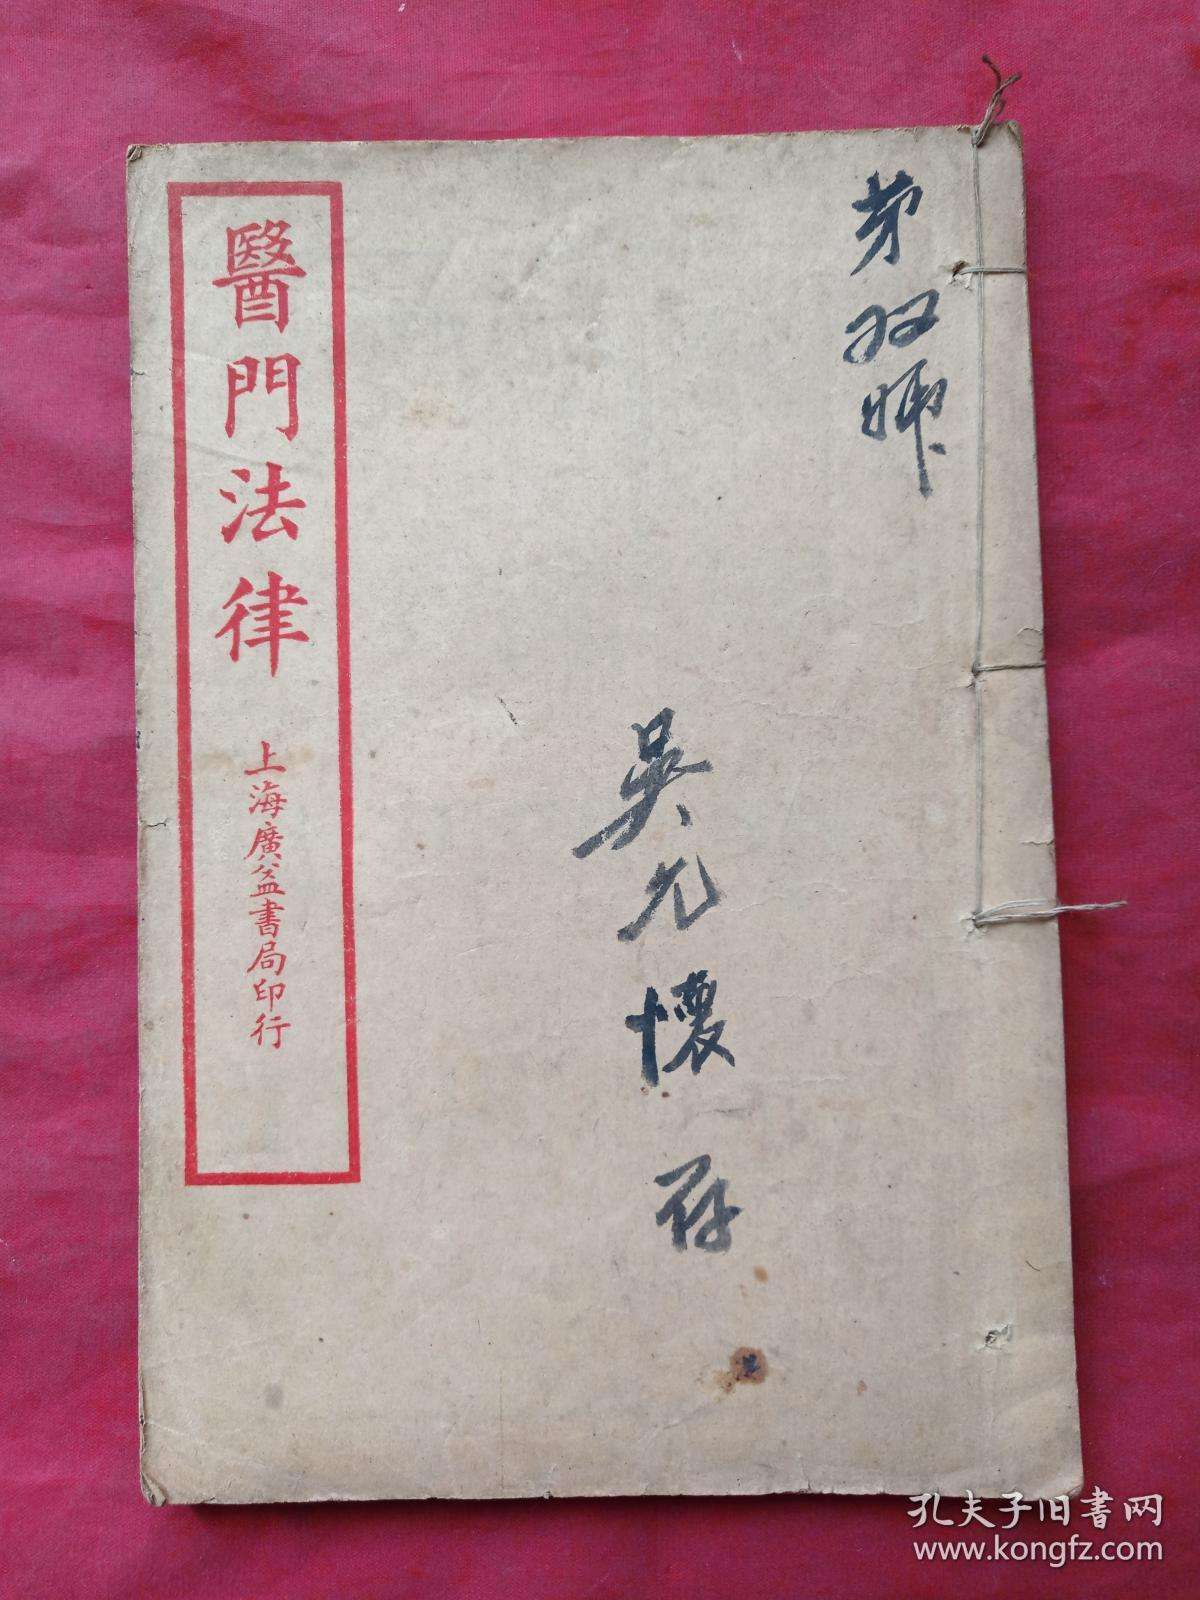 醫門法律
上海廣益書局印行
第双师
吳九懷存
孔夫子旧书网
www.kongfz.com